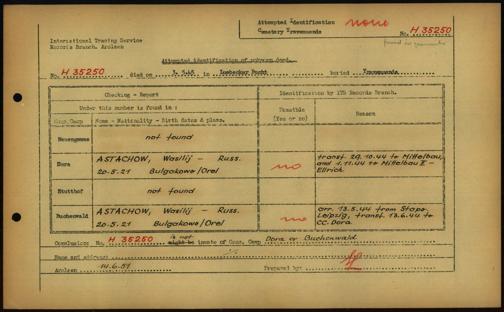 Attempted Identification none
Cemetery Travemuende No. H 35250
International Tracing Service
Records Branch, Arolsen
found in
Attempted identification of unknown dead.
No. H 35250 died on 3.5.45 in buried Travemuende
Checking - Report Identification by ITS Records Branch.
Under this number is found in: Possible (Yes or no) Reason
Conc.Camp Name - Nationality - Birth dates & place.
Neuengamme not found
Dora ASTACHOW, Wasilij – Russ. no transf. 29.10.44 to Mittelbau,
20.5.21 Bulgakowo/Orel and 1.11.44 to Mittelbau II –
Ellrich
Stutthof not found
Buchenwald ASTACHOW, Wasilij – Russ. no arr. 13.5.44 from Stapo
20.5.21 Bulgakowo/Orel Leipzig, transf. 13.6.44 to
CC. Dora
Conclusion: No. H 35250 is not might be inmate of Conc. Camp Dora or Buchenwald
Name and address:
Arolsen 14.6.51 Prepared by: